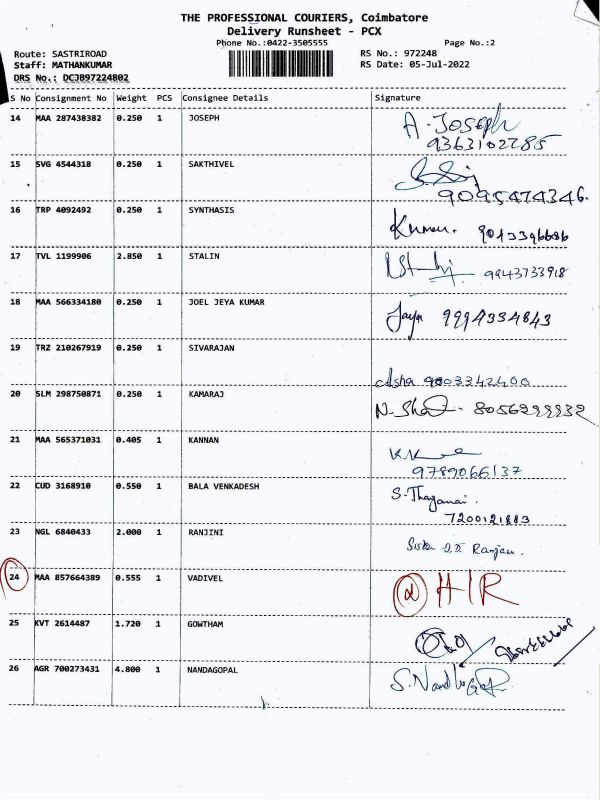 THE PROFESSIONAL COURIERS, Coimbatore
Delivery Runsheet - PCX
Phone No.:0422-3505555 Page No.:2
Route: SASTRIROAD RS No.: 972248
Staff: MATHANKUMAR RS Date: 05-Jul-2022
DRS No.: DCJB97224802
S No Consignment No Weight PCS Consignee Details Signature
14 MAA 287438382 0.250 1 JOSEPH A. JOSEPH
9363102785
15 SVG 4544318 0.250 1 SAKTHIVEL
9095474346.
16 TRP 4092492 0.250 1 SYNTHASIS Kumar.
17 TVL 1199906 2.850 1 STALIN 9943733918
18 MAA 566334180 0.250 1 JOEL JEYA KUMAR Jaya 9994334843
19 TRZ 210267919 0.250 1 SIVARAJAN
Asha 9003342400
20 SLM 298750871 0.250 1 KAMARAJ 8056299932
21 MAA 565371031 0.405 1 KANNAN
9789066137
22 CUD 3168910 0.550 1 BALA VENKADESH
7200121883
23 NGL 6840433 2.000 1 RANJINI
24 MAA 857664389 0.555 1 VADIVEL H/R
25 KVT 2614487 1.720 1 GOWTHAM
26 AGR 700273431 4.800 1 NANDAGOPAL S. Nandhagopal